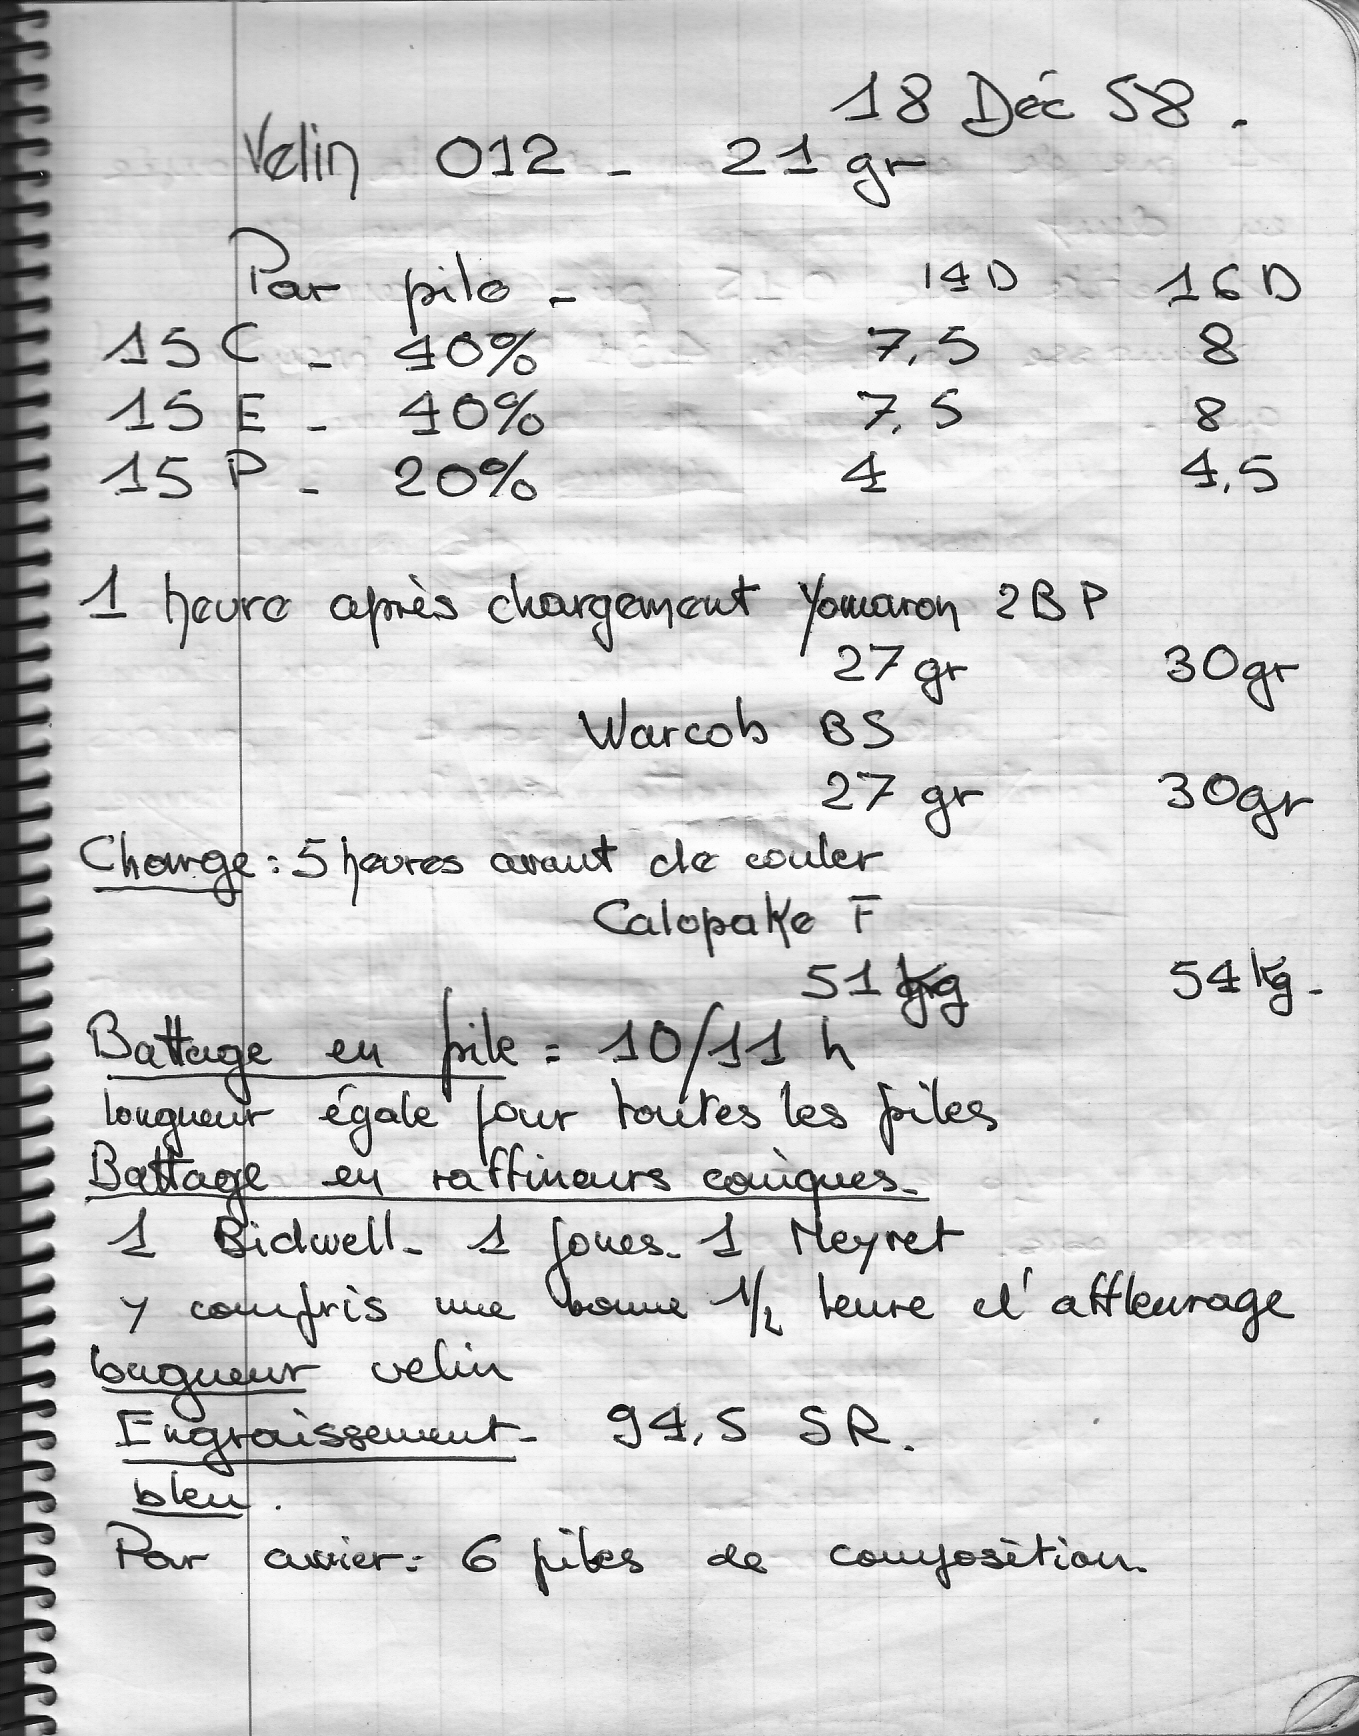 18 Déc 58.
Velin 012 - 21 gr
Par pile - 14D 16D
15 C - 40% 7,5 8
15 E - 40% 7,5 8
15 P - 20% 4 4,5
1 heure après chargement Yomaron 2BP
27 gr 30gr
Warcob BS
27 gr 30gr
Charge : 5 heures avant de couler
Calopake F
51 kg 54 kg -
Battage en pile = 10/11 h
longueur égale pour toutes les piles
Battage en raffineurs coniques -
1 Bidwell - 1 Jones - 1 Neyret
y compris une bonne 1/2 heure d'affleurage
longueur velin
Engraissement - 94,5 SR.
bleu.
Par cuvier : 6 piles de composition.